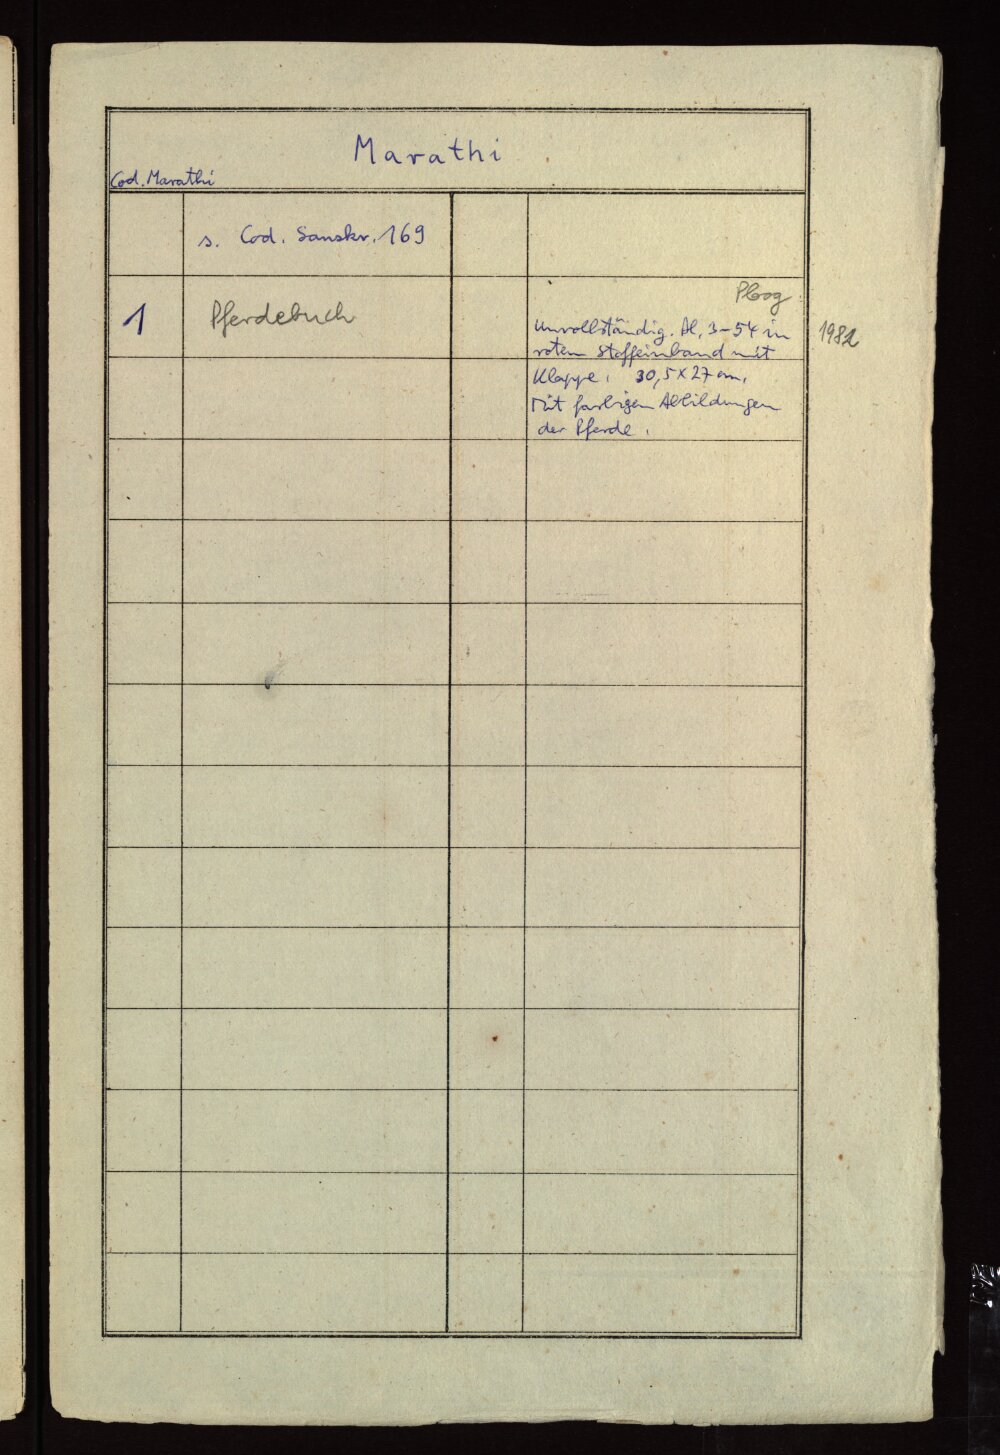 Marathi
Cod. Marathi
s. Cod. Sanskr. 169
1
Pferdebuch
Ploog
Unvollständig. Bl. 3-54 in
rotem Stoffeinband mit
Klappe. 30,5x27 cm.
Mit farbigen Abbildungen
der Pferde.
1982